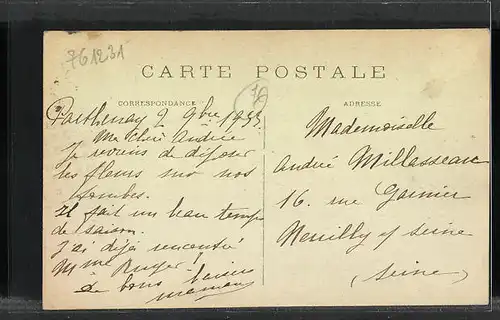 761231
CARTE POSTALE
CORRESPONDANCE
ADRESSE
Parthenay 2 9bre 1933
Ma chère Andrée
Je reviens de déposer
les fleurs sur nos
tombes.
Il fait un beau temps
de saison.
J'ai déjà rencontré
Mme Ruyer!
de bons baisers
maman
Mademoiselle
André Millasseau
16. rue Garnier
Neuilly s/ Seine
(Seine)